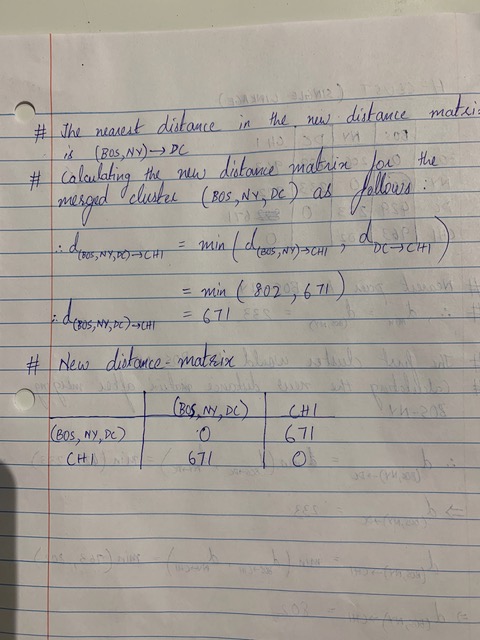 # The nearest distance in the new distance matrix
is (BOS, NY) → DC
# Calculating the new distance matrix for the
merged cluster (BOS, NY, DC) as follows:
∴ d(BOS,NY,DC)→CHI = min ( d(BOS,NY)→CHI , d DC→CHI )
= min ( 802, 671 )
∴ d(BOS,NY,DC)→CHI = 671
# New distance matrix
(BOS, NY, DC) CHI
(BOS, NY, DC) 0 671
CHI 671 0